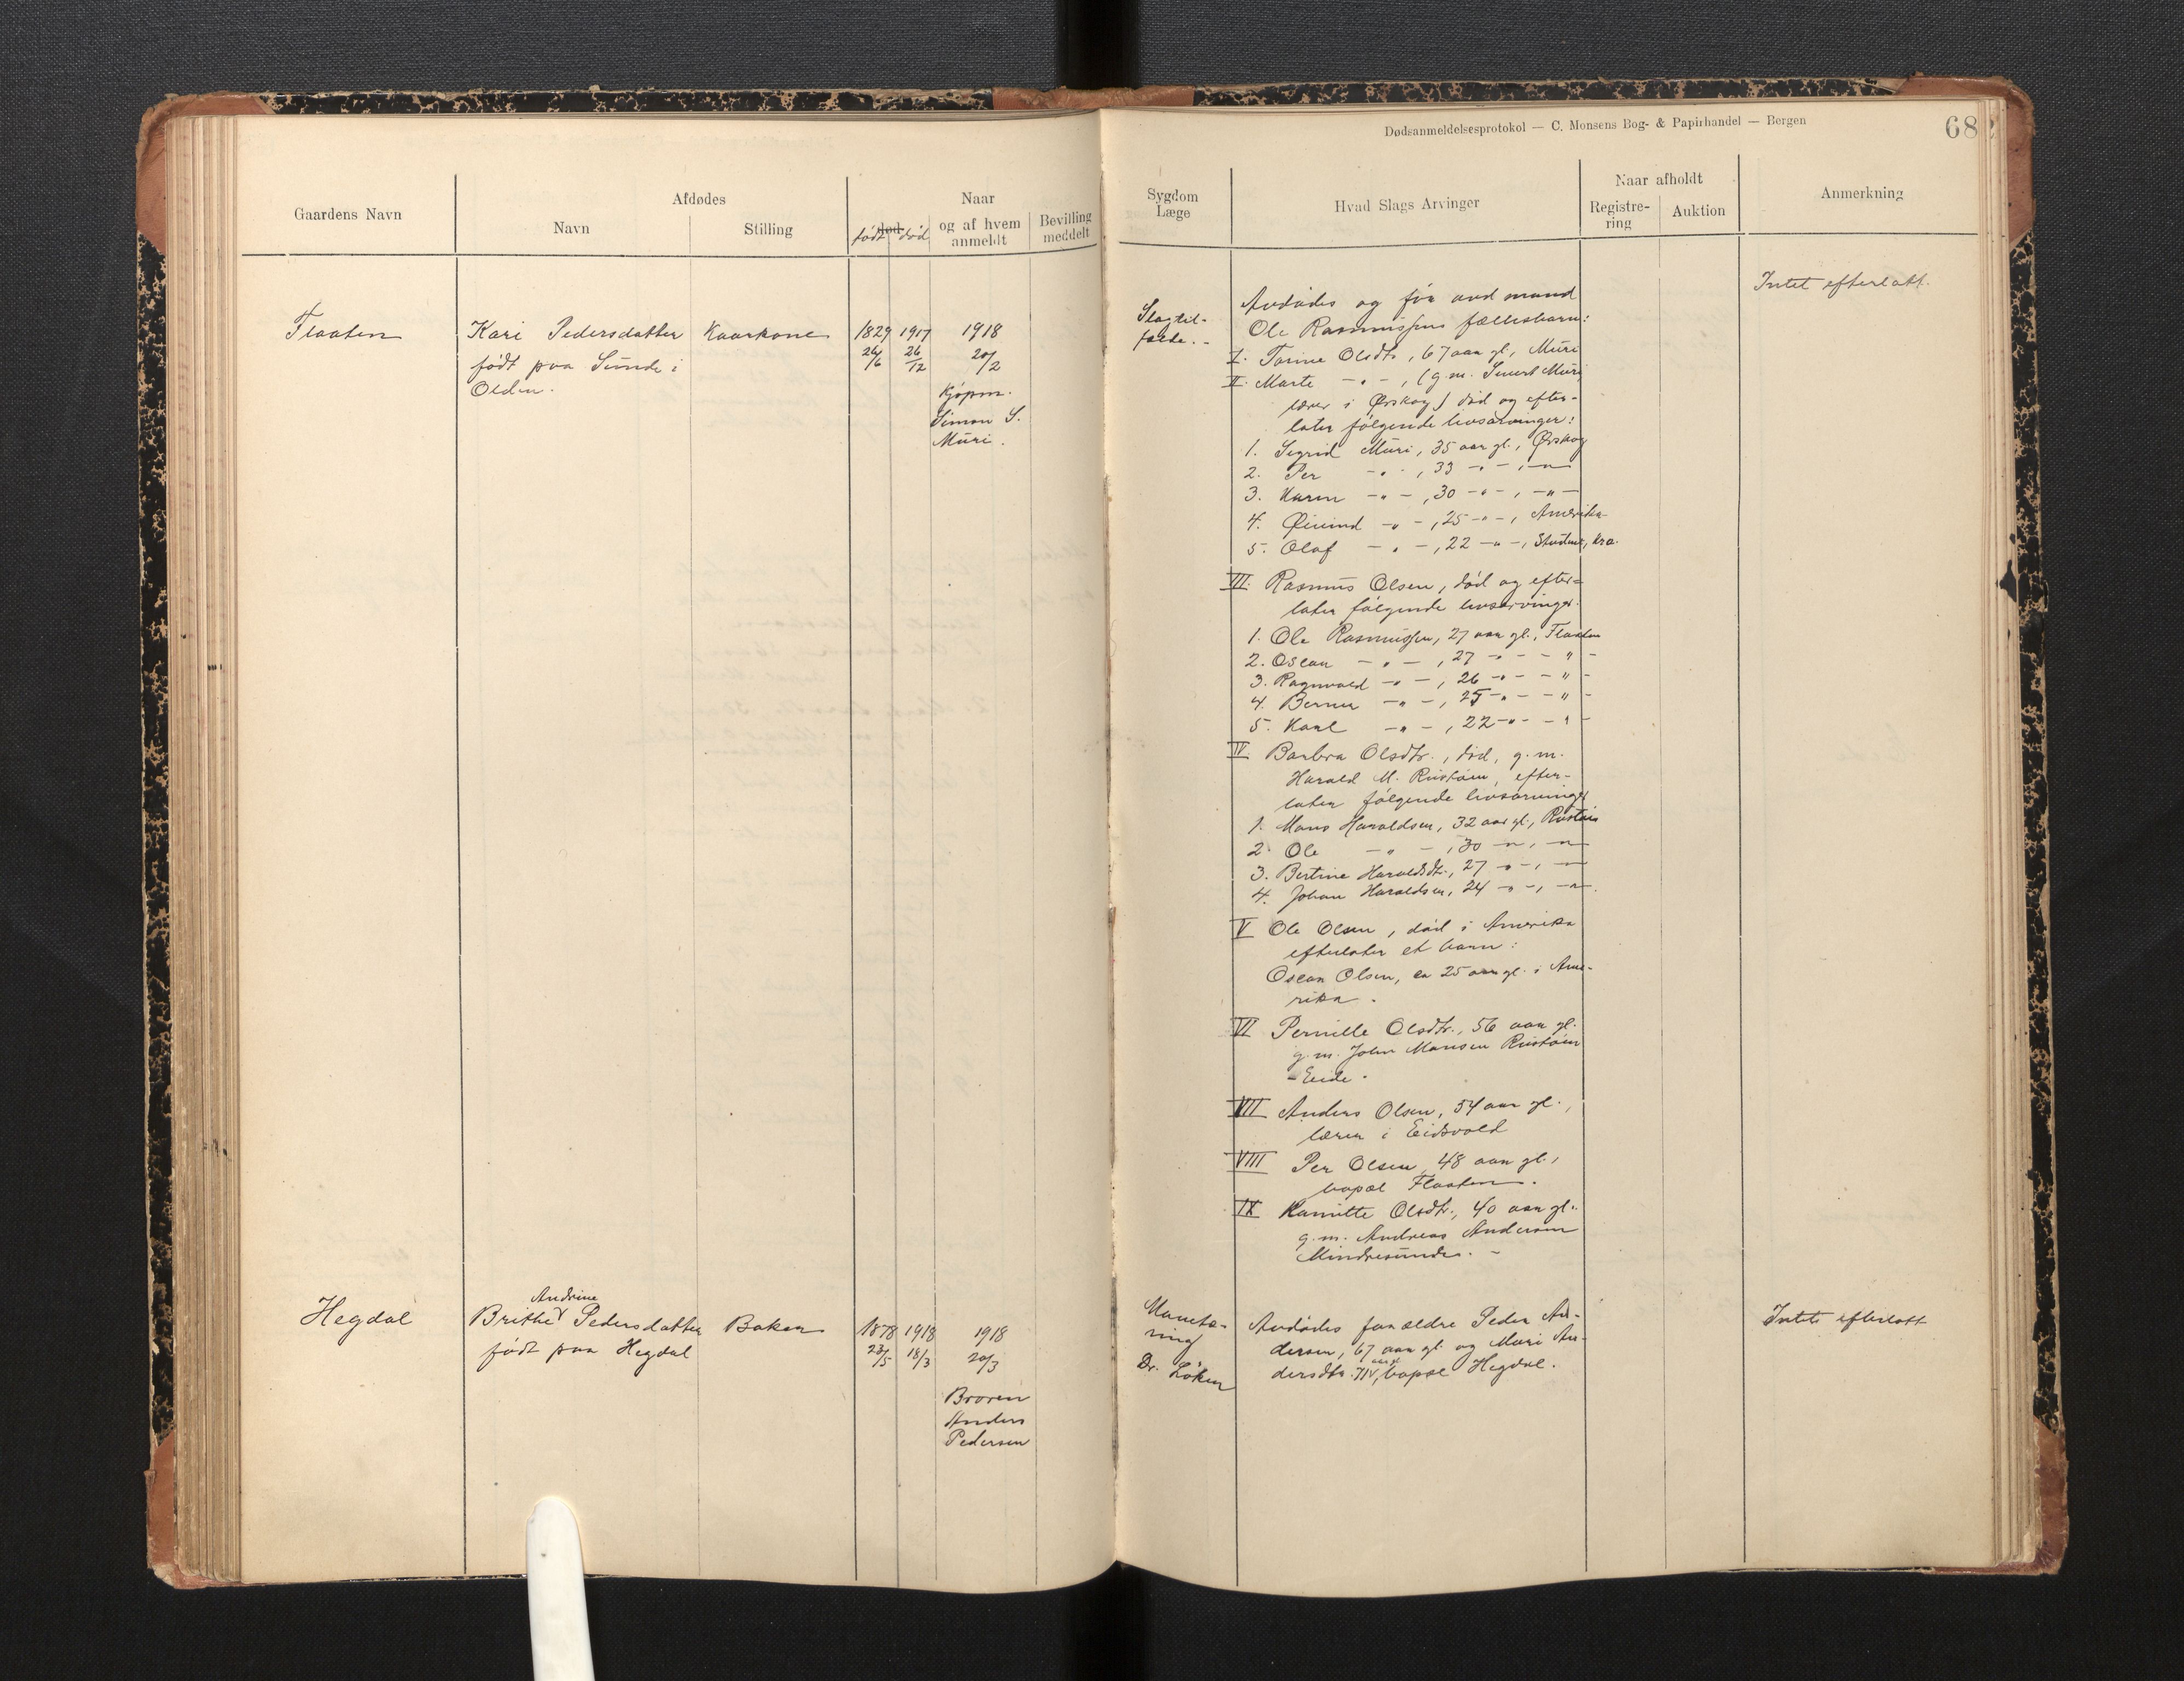 Dødsanmeldelsesprotokol — C. Monsens Bog- & Papirhandel — Bergen
68
Gaardens Navn
Afdødes
Navn
Stilling
født død
Naar
og af hvem
anmeldt
Bevilling
meddelt
Sygdom
Læge
Hvad Slags Arvinger
Naar afholdt
Registre-
ring
Auktion
Anmerkning
Flaaten
Kari Pedersdatter
født paa Sunde i
Olden.
Kaarkone
1829 1917
26/6 26/12
1918
20/2
Kjøpm.
Simon S.
Muri.
Slagtil-
fælde. -
Avdødes og før avd mand
Ole Rasmussens fællesbarn:
I. Torine Olsdtr, 67 aar gl., Muri
II. Marte -"-, (g.m. Sivert Muri
lærer i Ørskog) død og efter-
later følgende livsarvinger:
1. Sigrid Muri, 35 aar gl., Ørskog
2. Per -"-, 33 -"-, -"-
3. Karen -"-, 30 -"-, -"-
4. Øivind -"-, 25 -"-, Amerika
5. Olaf -"-, 22 -"-, Student, Kra.
III. Rasmus Olsen, død og efter-
later følgende livsarvinger.
1. Ole Rasmussen, 27 aar gl., Flaaten
2. Oscar -"-, 27 -"- -"-
3. Ragnvald -"-, 26 -"- -"-
4. Berner -"-, 25 -"- -"-
5. Karl -"-, 22 -"- -"-
IV. Barbra Olsdtr., død, g.m.
Harald M. Rustøen, efter-
later følgende livsarvinger
1. Mons Haraldsen, 32 aar gl., Rustøen
2. Ole -"-, 30 -"-, -"-
3. Bertine Haraldsdtr., 27 -"-, -"-
4. Johan Haraldsen, 24 -"-, -"-
V Ole Olsen, død i Amerika
efterlater et barn:
Oscar Olsen, ca 25 aar gl. i Ame-
rika.
VI Pernille Olsdtr., 56 aar gl.
g.m. John Monsen Rustøen
- Eide.
VII Anders Olsen, 54 aar gl.,
lærer i Eidsvold
VIII Per Olsen, 48 aar gl.,
bopæl Flaaten.
IX Kamille Olsdtr., 40 aar gl.
g.m. Andreas Andersen
Mindresunde. -
Intet efterlatt.
Hegdal
Andrine
Brithe Pedersdatter
født paa Hegdal
1878 1918
23/5 18/3
1918
20/3
Broren
Anders
Pedersen
Dr. Løken
Avdødes forældre Peder An-
dersen, 67 aar gl. og Mari An-
dersdtr. 71 aar gl., bopæl Hegdal.
Intet efterlatt